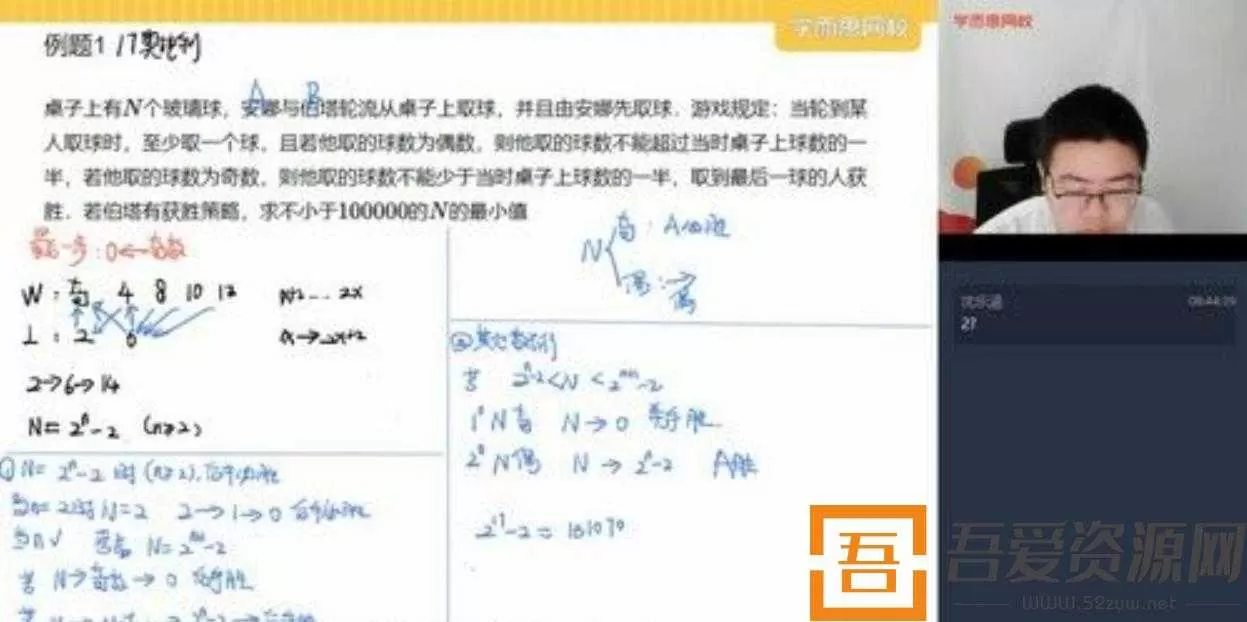 学而思网校
例题1 17奥地利
A B
桌子上有N个玻璃球，安娜与伯塔轮流从桌子上取球，并且由安娜先取球．游戏规定：当轮到某
人取球时，至少取一个球，且若他取的球数为偶数，则他取的球数不能超过当时桌子上球数的一
半，若他取的球数为奇数，则他取的球数不能少于当时桌子上球数的一半，取到最后一球的人获
胜．若伯塔有获胜策略，求不小于100000的N的最小值
最后一步：0←奇数
W：奇 4 8 10 12
L：2 6
2→6→14
N=2ⁿ-2 (n≥2)
①N=2ⁿ-2时(n≥2),后手必胜
当n=2时N=2 2→1→0
当n√ N=2ⁿ⁺¹-2
若N→奇数→0 后手胜
N
奇：A必胜
偶：→偶
②其它
若 2ⁿ-2<N<2ⁿ⁺¹-2
1° N奇 N→0 先手胜
2° N偶 N→2ⁿ-2 A胜
2¹⁷-2=131070
学而思网校
2?
吾
吾爱资源网
WWW.52zyw.net